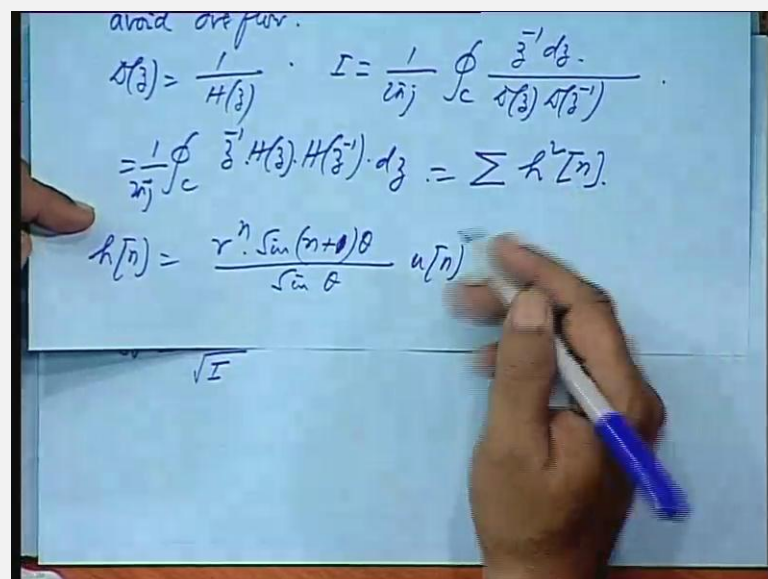 avoid overflow.
D(z) = 1/H(z) . I = 1/2πj ∮c z⁻¹ dz. / D(z) D(z⁻¹) .
= 1/2πj ∮c z⁻¹. H(z). H(z⁻¹). dz. = Σ h²[n].
h[n] = rⁿ. Sin (n+1)θ / Sin θ u[n]
√I